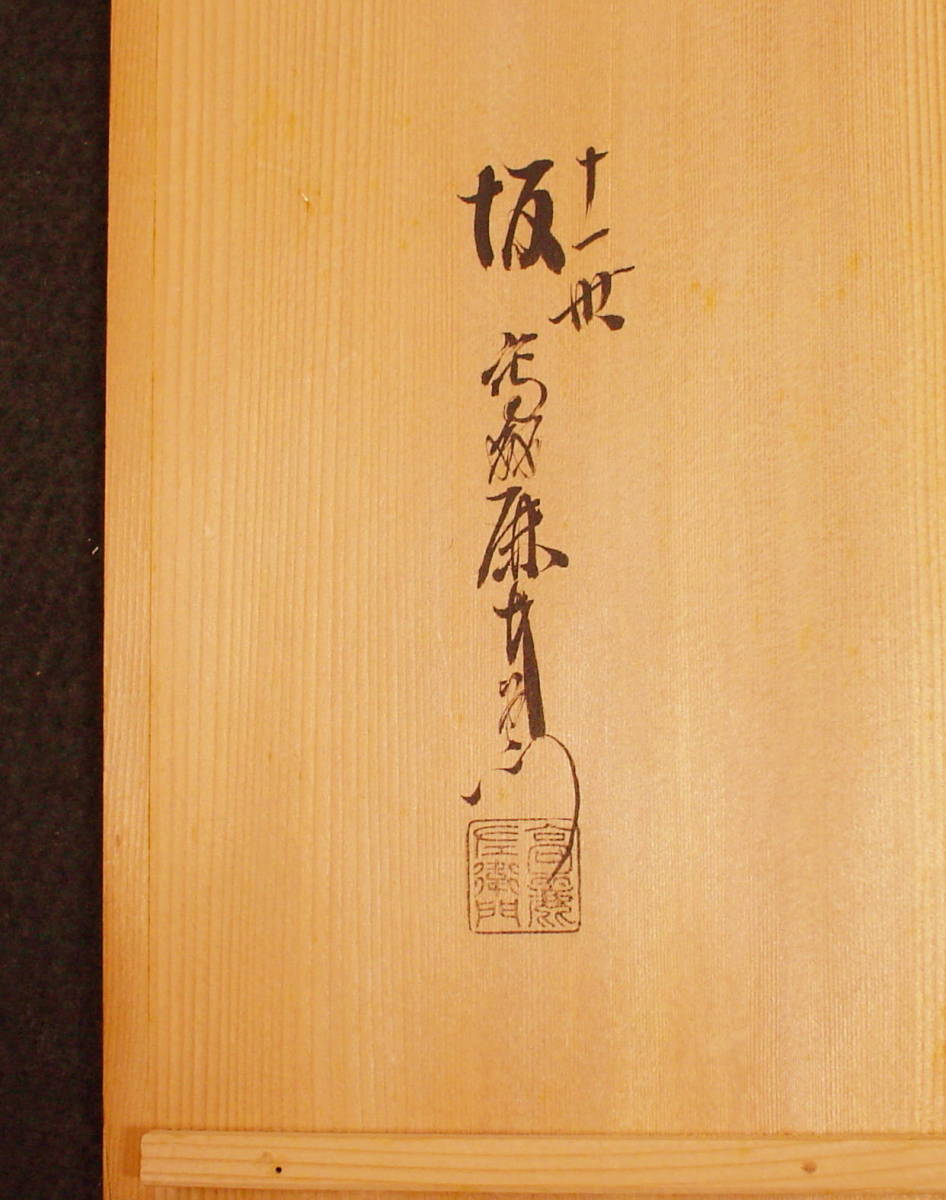 十一世
坂高麗左衛門
高麗
左衛門